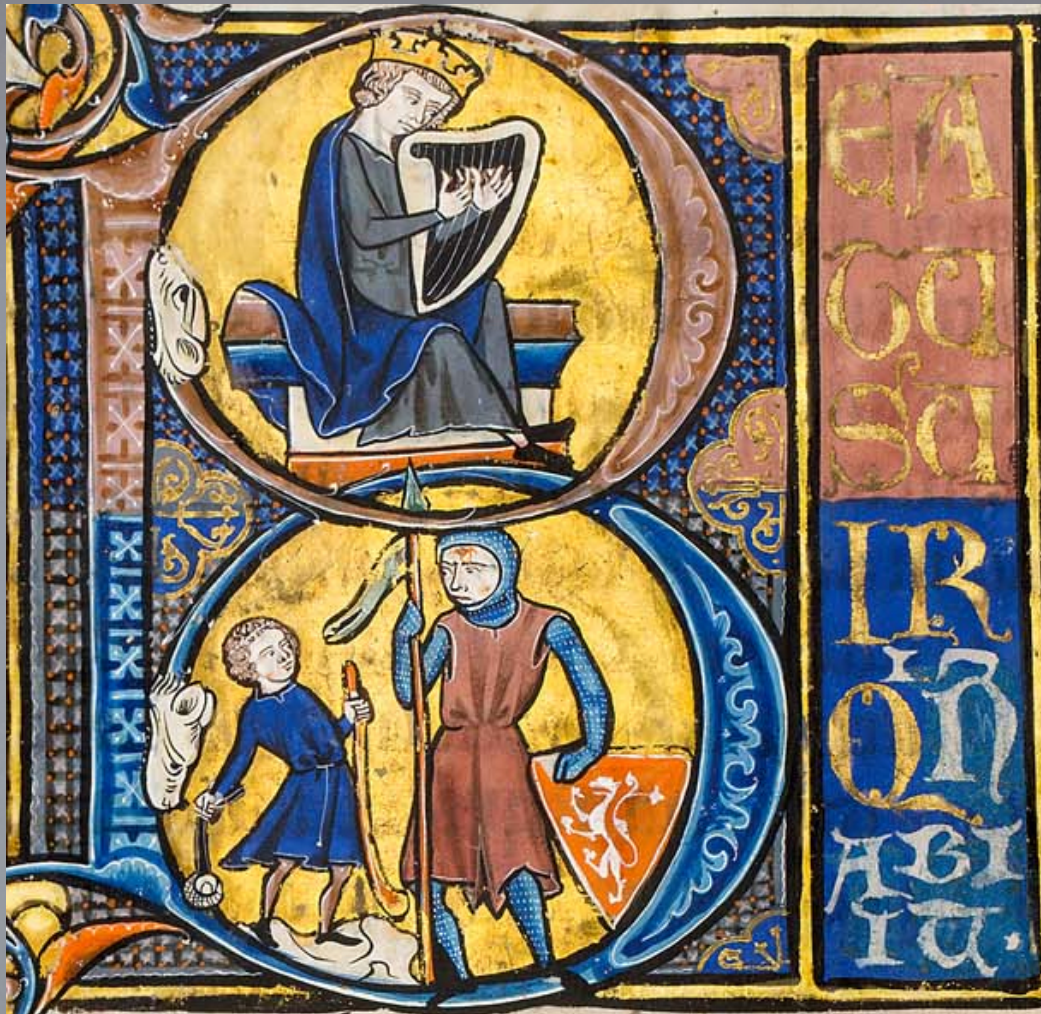 B
EA
TU
SU
IR
QͥN̄
ABI
IT.